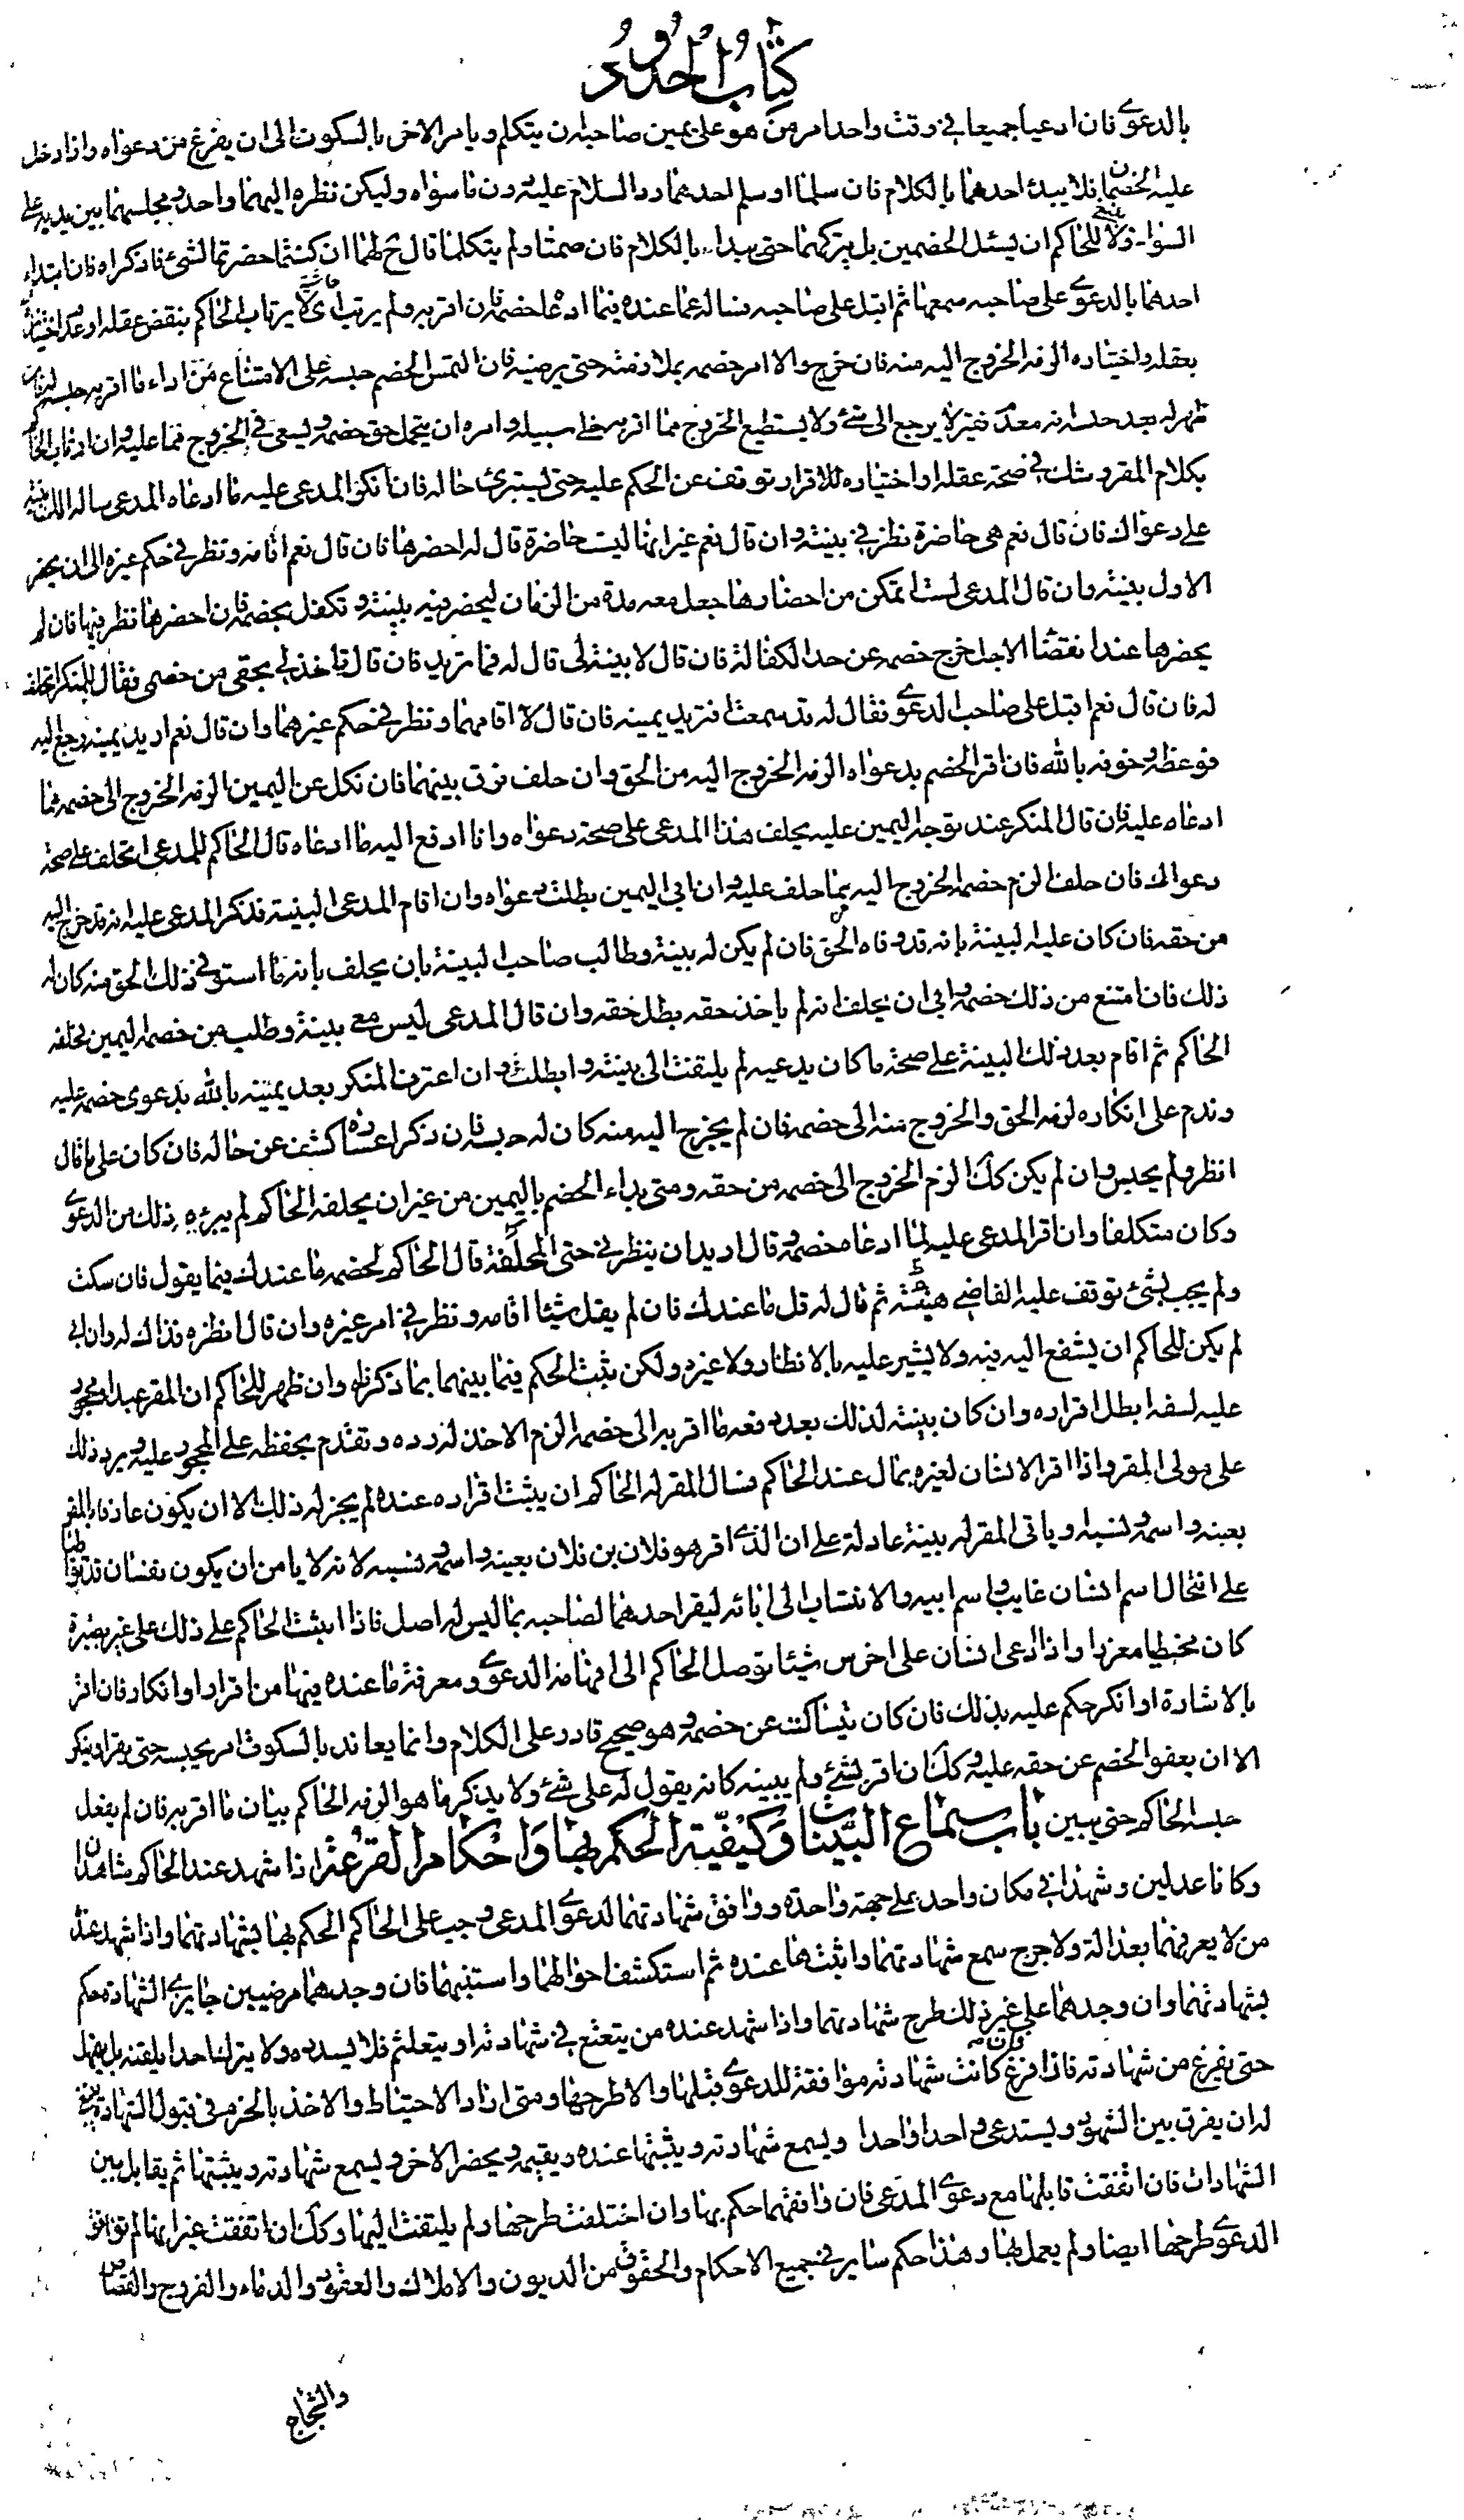 كتاب الحدود
بالدعوى فان ادعيا جميعا في وقت واحد امر من هو على يمين صاحبه ان يتكلم ويامر الاخر بالسكوت الى ان يفرغ من دعواه واذا دخل
عليه الخصمان فلا يبدء احدهما بالكلام فان سلما او سلم احدهما رد السلام عليه دون ما سواه وليكن نظره اليهما واحدا ومجلسهما بين يديه على
السواء ولا ينبغي للحاكم ان يسئل الخصمين بل يتركهما حتى يبدا بالكلام فان صمتا ولم يتكلما قال ح لهما ان كنتما حضرتما لشئ فاذكراه فان ابتداء
احدهما بالدعوى على صاحبه سمعها ثم اقبل على صاحبه فساله عما عنده فيما ادعاه خصمه فان اقر به ولم يرتب اي لا يرتاب الحاكم بنقص عقله او عدم اختياره
بعقله واختياره الزمه الخروج اليه منه فان خرج والا امر خصمه بملازمته حتى يرضيه فان التمس الخصم حبسه على الامتناع من اداء ما اقر به حبسه له فان
ظهر له بعد حبسه انه معدم فقير لا يرجع الى شئ ولا يستطيع الخروج مما اقر به خلى سبيله وامره ان يتحمل حق خصمه ويسعى في الخروج مما عليه وان ارتاب الحاكم
بكلام المقر وشك في صحة عقله او اختياره للاقرار توقف عن الحكم عليه حتى يستبرئ حاله فان انكر المدعى عليه ما ادعاه المدعي ساله الك بينة
على دعواك فان قال نعم هي حاضرة نظر في بينته وان قال نعم غير انها ليست حاضرة قال له احضرها فان قال نعم اقامه ونظر في حكم غيره الى ان يحضر
الاول بينته وان قال المدعي لست اتمكن من احضارها جعل معه مدة من الزمان ليحضر فيه بينته وتكفل بخصمه فان احضرها نظر فيها فان لم
يحضرها عند انقضاء الاجل خرج خصمه عن حد الكفالة فان قال لا بينة لي قال له فما تريد فان قال تاخذ لي بحقي من خصمي فقال للمنكر اتحلف
له فان قال نعم اقبل على صاحب الدعوى فقال له قد سمعت افتريد يمينه فان قال لا اقامهما ونظر في حكم غيرهما وان قال نعم اريد يمينه رجع اليه
فوعظه وخوفه بالله فان اقر الخصم بدعواه الزمه الخروج اليه من الحق وان حلف فرق بينهما فان نكل عن اليمين الزمه الخروج الى خصمه مما
ادعاه عليه فان قال المنكر عند توجه اليمين عليه يحلف هذا المدعي على صحة دعواه وانا ادفع اليه ما ادعاه قال الحاكم للمدعي اتحلف على صحة
دعواك فان حلف الزم خصمه الخروج اليه بما حلف عليه وان ابى اليمين بطلت دعواه وان اقام المدعي البينة فذكر المدعى عليه انه قد خرج اليه
من حقه فان كان عليه البينة بانه قد وفاه الحق فان لم يكن له بينة وطالب صاحب البينة بان يحلف بانه ما استوفى ذلك الحق منه كان له
ذلك فان امتنع من ذلك خصمه وابى ان يحلف انه لم ياخذ حقه بطل حقه وان قال المدعي ليس معي بينة وطلب من خصمه اليمين فحلفه
الحاكم ثم اقام بعد ذلك البينة على صحة ما كان يدعيه لم يلتفت الى بينته وابطلت وان اعترف المنكر بعد يمينه بالله بدعوى خصمه عليه
وندم على انكاره لزمه الحق والخروج منه الى خصمه فان لم يخرج اليه منه كان له حبسه فان ذكر اعساره كشف عن حاله فان كان على ما قال
انظر ولم يحبس وان لم يكن كك الزم الخروج الى خصمه من حقه ومتى بداء الخصم باليمين من غير ان يحلفه الحاكم لم يبرءه ذلك من الدعوى
وكان متكلفا وان اقر المدعى عليه لما ادعاه خصمه وقال اريد ان ينظر في حتى اتمحله قال الحاكم لخصمه ما عندك فيما يقول فان سكت
ولم يجب بشئ توقف عليه القاضي هنيئة ثم قال له قل ما عندك فان لم يقل شيئا اقامه ونظر في امر غيره وان قال انظره فذاك له وان ابى
لم يكن للحاكم ان يشفع اليه فيه ولا يشير عليه بالانظار ولا غيره ولكن يثبت الحكم فيما بينهما بما ذكرناه وان ظهر للحاكم ان المقر عبد او محجور
عليه لسفه ابطل اقراره وان كان بينته لذلك بعد دفعه ما اقر به الى خصمه الزم الاخذ له رده وتقدم بحفظه على المحجور عليه ويرد ذلك
على مولى المقر واذا اقر الانسان لغيره بمال عند الحاكم فسال المقر له الحاكم ان يثبت اقراره عنده لم يجز له ذلك الا ان يكون عارفا بالمقر
بعينه واسمه ونسبه او ياتي المقر له ببينة عادلة على ان الذي اقر هو فلان بن فلان بعينه واسمه ونسبه لانه لا يامن ان يكون نفسان قد تواطئا
على انتحال اسم انسان غايب واسم ابيه والانتساب الى ابائه ليقر احدهما لصاحبه بما ليس له اصل فاذا اثبت الحاكم على ذلك على غير بصيرة
كان مخطيا مغررا واذا ادعى انسان على اخرس شيئا توصل الحاكم الى افهامه الدعوى ومعرفة ما عنده فيها من اقرار او انكار فان اقر
بالاشارة او انكر حكم عليه بذلك فان كان يتساكت عن خصمه وهو صحيح قادر على الكلام وانما يعاند بالسكوت امر بحبسه حتى يقر او ينكر
الا ان يعفو الخصم عن حقه عليه وكك ان اقر بشئ ولم يبينه كانه يقول له علي شئ ولا يذكر ما هو الزمه الحاكم بيان ما اقر به فان لم يفعل
حبسه الحاكم حتى يبين باب سماع البينات وكيفية الحكم بها واحكام القرعة اذا شهد عند الحاكم شاهدان
وكانا عدلين وشهدا في مكان واحد على جهة واحدة ووافق شهادتهما لدعوى المدعي وجب على الحاكم الحكم بها بشهادتهما واذا شهد عنده
من لا يعرفهما بعدالة ولا جرح سمع شهادتهما واثبتها عنده ثم استكشف احوالهما واستثبتهما فان وجدهما مرضيين جايزي الشهادة حكم
بشهادتهما وان وجدهما على غير ذلك طرح شهادتهما واذا شهد عنده من يتعتع في شهادته او يتعلثم فلا يسدده ولا يترك احدا يلقنه بل يمهل
حتى يفرغ من شهادته فاذا فرغ فان كانت شهادته موافقة للدعوى قبلها والا طرحها ومتى اراد الاحتياط والاخذ بالحزم في قبول الشهادة ينبغي
له ان يفرق بين الشهود ويستدعي واحدا واحدا ويسمع شهادته ويثبتها عنده ويقيمه ويحضر الاخر ويسمع شهادته ويثبتها ثم يقابل بين
الشهادات فان اتفقت قابلها مع دعوى المدعي فان وافقتهما حكم بها وان اختلفت طرحها ولم يلتفت اليها وكك ان اتفقت غير انها لم توافق
الدعوى طرحها ايضا ولم يعمل بها وهذا حكم ساير في جميع الاحكام والحقوق من الديون والاملاك والعقود والدماء والفروج والقصاص
والشجاج